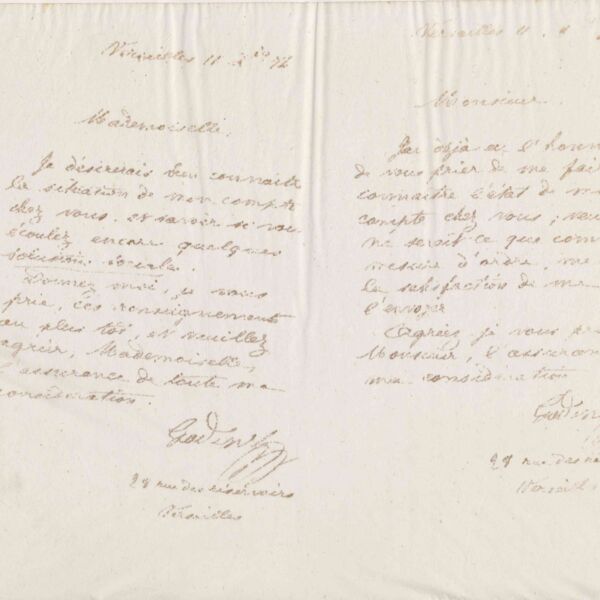 Versailles 11 Xbre 74
Mademoiselle,
Je désirerais bien connaitre
la situation de mon compte
chez vous, et savoir si vous
écoulez encore quelques
solution sociale.
Donnez moi, je vous
prie, ces renseignements
au plus tôt, et veuillez
agréer, Mademoiselle,
l'assurance de toute ma
considération.
Godin
28 rue des réservoirs
Versailles
Versailles 11
Monsieur,
J'ai déjà eu l'honn
de vous prier de me fair
connaitre l'état de m
compte chez vous; veu
ne serait ce que com
mesure d'ordre, me
la satisfaction de me
l'envoyer
Agréez je vous
Monsieur, l'assuran
ma considération
Godin
28 rue des
Versaill